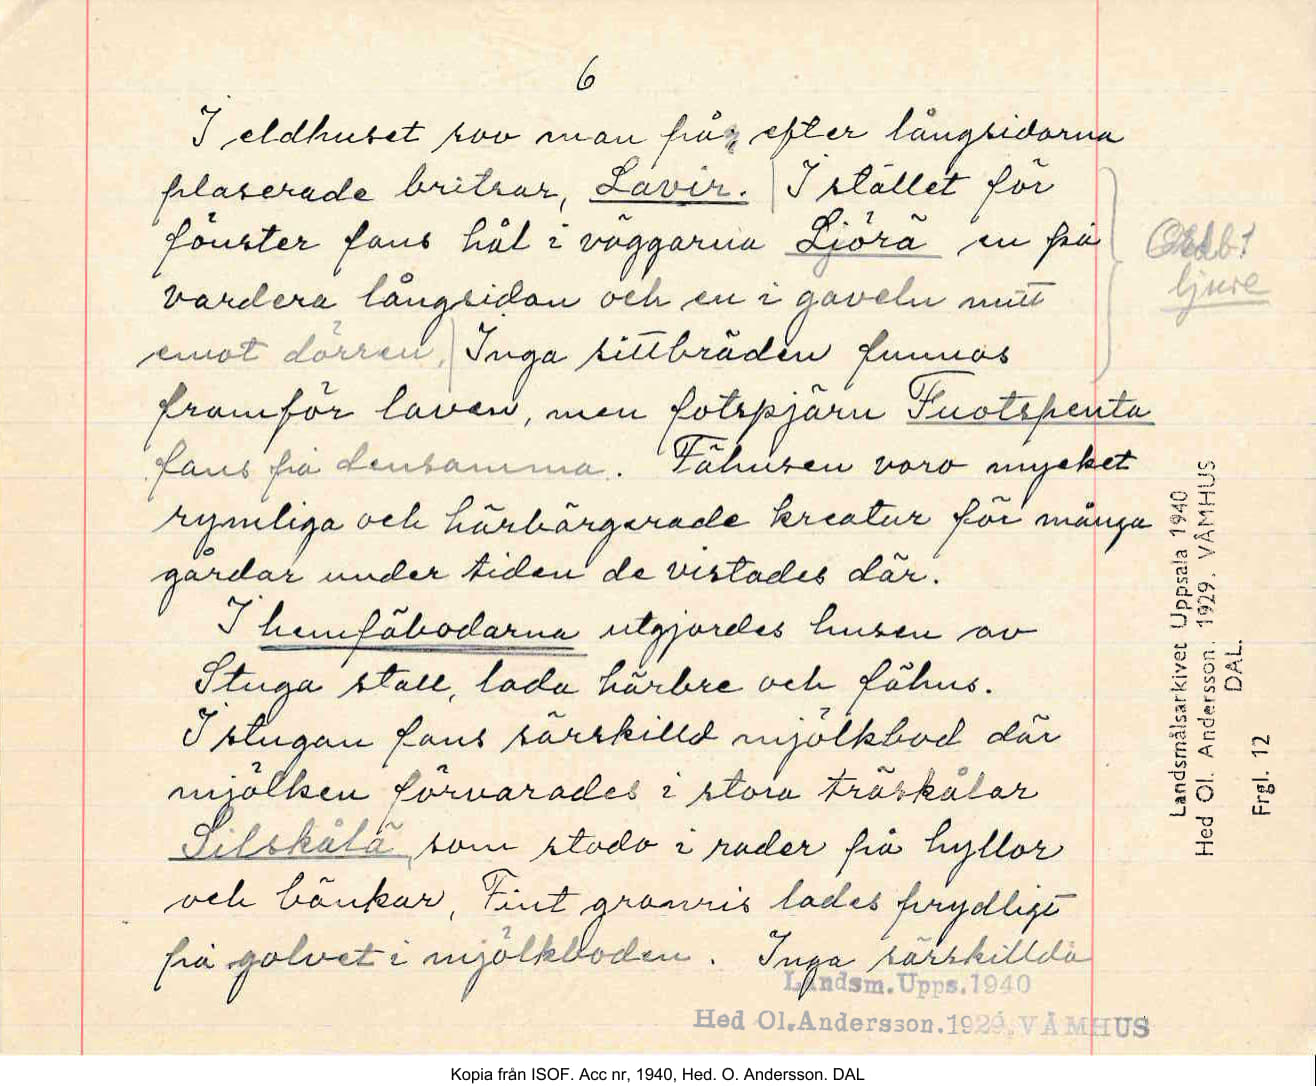 6
I eldhuset sov man på, efter långsidorna
plaserade britsar, Lavir. I stället för
fönster fans hål i väggarna Ljörä en på
vardera långsidan och en i gaveln mitt
emot dörren. Inga sittbräden funnos
framför laven, men fotspjärn Fuotspenta
fans på densamma. Fähusen voro mycket
rymliga och härbärgerade kreatur för många
gårdar under tiden de vistades där.
I hemfäbodarna utgjordes husen av
Stuga stall, lada härbre och fähus.
I stugan fans särskilld mjölkbod där
mjölken förvarades i stora träskålar
Silskålä, som stodo i rader på hyllor
och bänkar, Fint granris lades prydligt
på golvet i mjölkboden. Inga särskillda
ljure
Landsmålsarkivet Uppsala 1940
Hed Ol. Andersson. 1929. VÅMHUS
DAL.
Frgl. 12
Landsm.Upps.1940
Hed Ol.Andersson.1929.VÅMHUS
Kopia från ISOF. Acc nr, 1940, Hed. O. Andersson. DAL